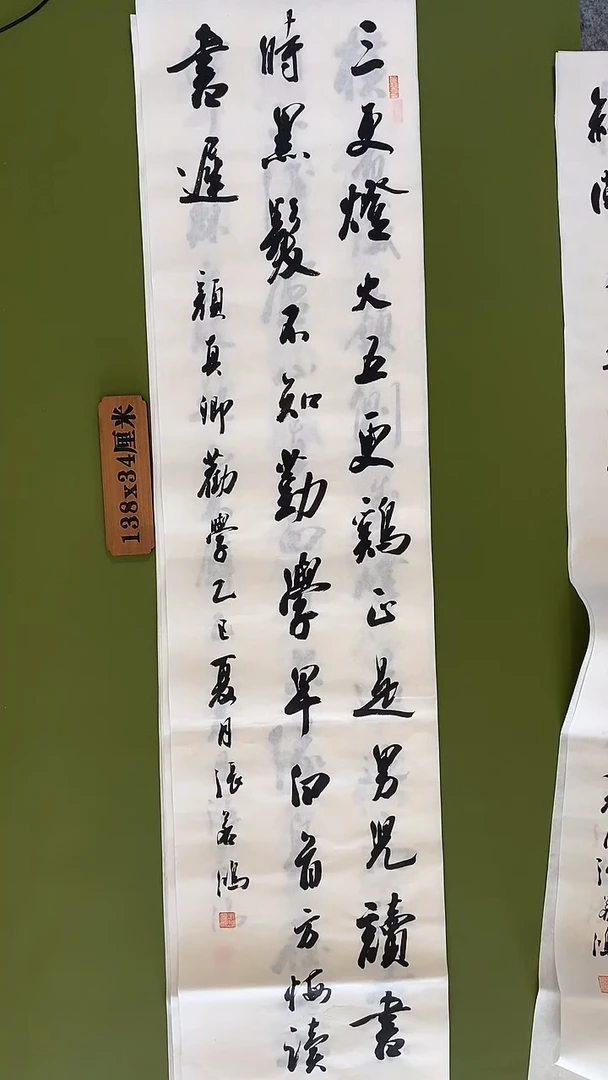 三更燈火五更鷄正是男兒讀書
時黑髮不知勤學早白首方悔讀
書遲
顏真卿勸學乙巳夏月張若鴻
138x34厘米